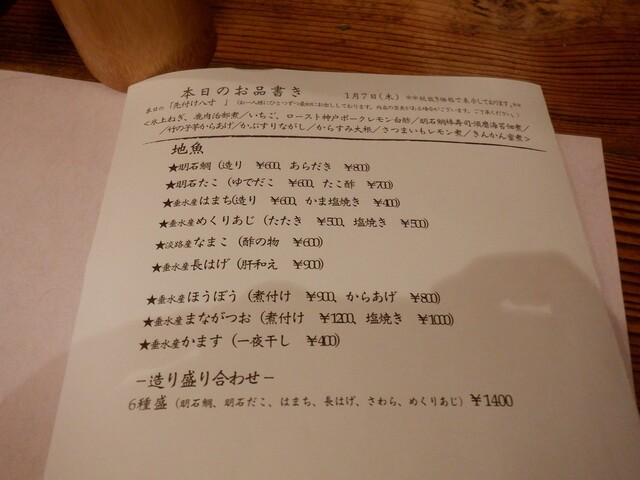 本日のお品書き　1月7日(木)　※※税抜き価格で表示しております。※※
本日の「先付け八寸」(お一人様にひとつずつ最初にお出ししております。内容の変更がある場合がございます。ご了承ください。)
<氷上ねぎ、鹿肉治部煮/いちご、ロースト神戸ポークレモン白酢/明石鯛棒寿司・須磨海苔佃煮/
/竹の子芋からあげ/かぶすりながし/からすみ大根/さつまいもレモン煮/きんかん蜜煮>
地魚
★明石鯛(造り　¥600、あらだき　¥800)
★明石たこ(ゆでだこ　¥600、たこ酢　¥700)
★垂水産はまち(造り　¥600、かま塩焼き　¥400)
★垂水産めくりあじ(たたき　¥500、塩焼き　¥500)
★淡路産なまこ(酢の物　¥600)
★垂水産長はげ(肝和え　¥900)
★垂水産ほうぼう(煮付け　¥900、からあげ　¥800)
★垂水産まながつお(煮付け　¥1200、塩焼き　¥1000)
★垂水産かます(一夜干し　¥400)
−造り盛り合わせ−
6種盛(明石鯛、明石だこ、はまち、長はげ、さわら、めくりあじ)¥1400